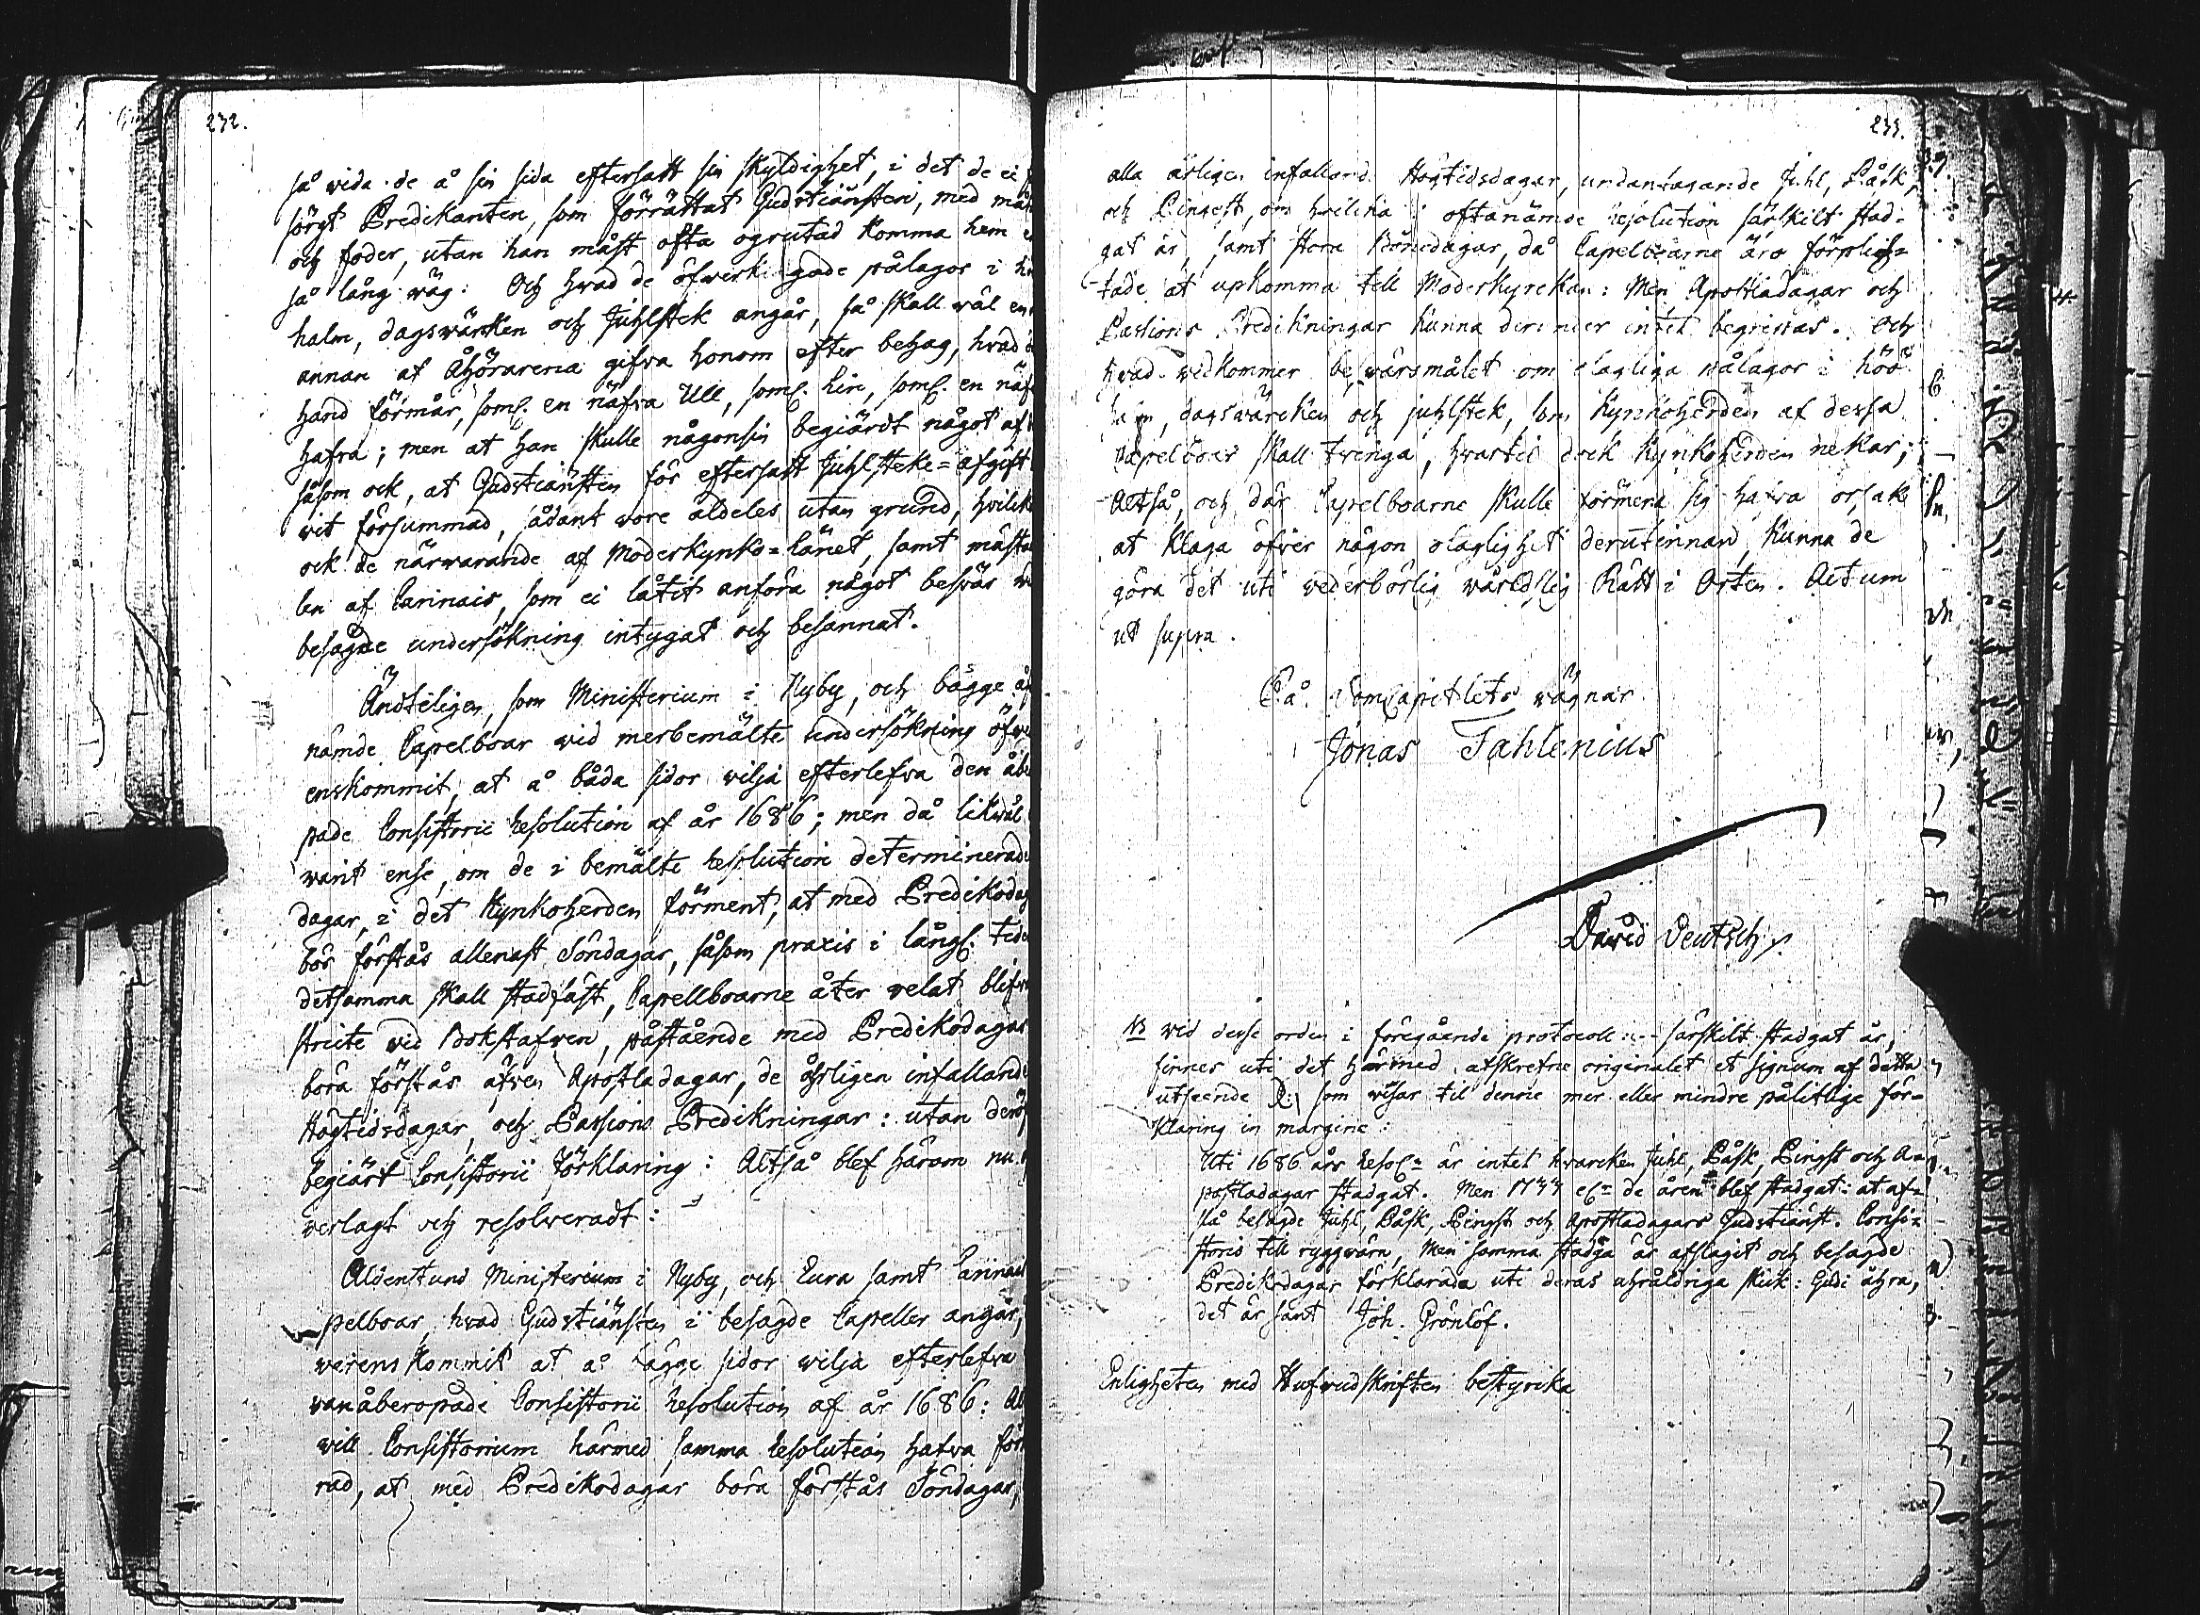 232.
så wida de å sin sida eftersatt sin skyldighet, i det de ei
sörgt Predikanten, som förrättat Gudstiänsten, med mat
och foder, utan han måst ofta ogeutad komma hem
så lång wäg: Och hwad de öfwerklagade pålagor i
halm, dagswärcken och Juhlstek angår, så skall wäl en
annan af Åhörarena gifva honom efter behag, hwad
hand förmår, soml. en näfva Ull, soml. Lin, soml. en näf
hafra; men at han skulle någonsin begiärdt något af
såsom ock, at Gudstiänsten för eftersatt Juhlsteke=afgift
wit försummad, sådant wore aldeles utan grund, hwilcke
ock de närwarande af Moderkyrko=Länet, samt mästa
len af Carinais, som ei låtit anföra något beswär
besagde undersökning intygat och besannat.
Ändteligen, som Ministerium i Nyby, och bägge
nämde Capelboar wid merbemälte undersökning öfwer
enskommit, at å båda sidor wilja efterlefva den åbero
pade Consistorii Resolution af år 1686; men då likwäl
warit ense, om de i bemälte Resolution determinerade
dagar, i det Kyrkoherden förment, at med Predikodag
bör förstås allenast Söndagar, såsom praxis i långl. tider
detsamma skall stadfäst, Capellboarne åter welat blifwa
stricte wid Bokstafwen, påstående med Predikodagar
böra förstås äfwen Apostladagar, de årligen infallande
Högtidsdagar, och Passions Predikningar: utan
begiärt Consistorii förklaring: Altså blef härom nu
werlagt och resolweradt:
Aldenstund Ministerium i Nyby, och Lura samt Carinais
pelboar, hwad Gudstiänsten i besagde Capeller angår,
werenskommit at å bägge sidor wilja efterlefwa
wanåberopade Consistorii Resolution af år 1686:
will Consistorium härmed samma Resolution hafwa för
rad, at med Predikodagar böra förstås Söndagar,
233.
alla årligen infalland. Högtidsdagar, undantagande Juhl, Påsk,
och Pingest, om hwilcka i oftanämde Resolution särskilt stad-
gat är, samt stora Bönedagar, då Capelboarne äro förplich-
tade at upkomma till Moderkyrckan: Men Apostladagar och
Passions Predikningar kunna derunder intet begripas. Och
hwad widkommer beswärsmålet om olagliga pålagor i höö
halm, dagswärcken och juhlstek, som Kyrkoherden af dessa
Capelboar skall twinga, hwartil dock Kyrkoherden nekar;
Altså, och där Capelboarne skulle förmena sig hafva orsak
at klaga öfver någon olaglighet derutinnan, kunna de
göra det uti wederbörlig wärldslig Rätt i Orten. Actum
ut supra.
På DomCapitlets wägnar
Jonas Fahlenius
David Deutsch
NB wid desse orden i föregående protocoll: --- särskilt stadgat är,
finnes uti det härmed afskrefne originalet et signum af detta
utseende som wisar til denne mer eller mindre pålitlige för-
klaring in margine:
Uti 1686 års Resol:n är intet hwarcken Juhl, Påsk, Pingst och A-
postladagar stadgat. Men 1733 de åren blef stadgat: at af-
slå besagde Juhl, Påsk, Pingst och Apostladagars Gudstiänst. Consi-
storio till ryggwärn, Men samma stadga är afslagit och besagde
Predikodagar förklarade uti deras uhråldriga skick: Gudi ähra,
det är sant Joh. Grönlöf.
Enligheten med Hufwudskriften bestyrcka